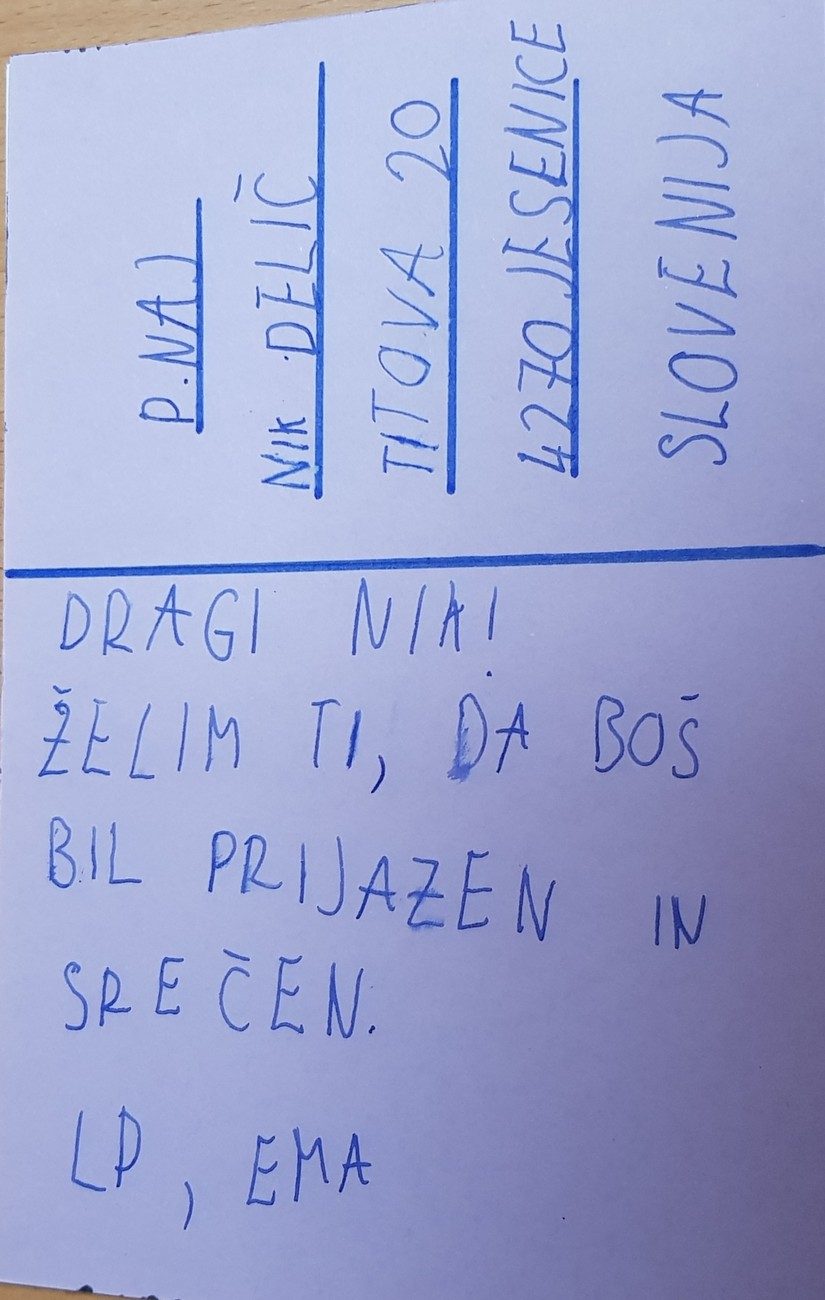 P.NAJ
NIK DELIČ
TITOVA 20
4270 JESENICE
SLOVENIJA
DRAGI NIK!
ŽELIM TI, DA BOŠ
BIL PRIJAZEN IN
SREČEN.
LP, EMA